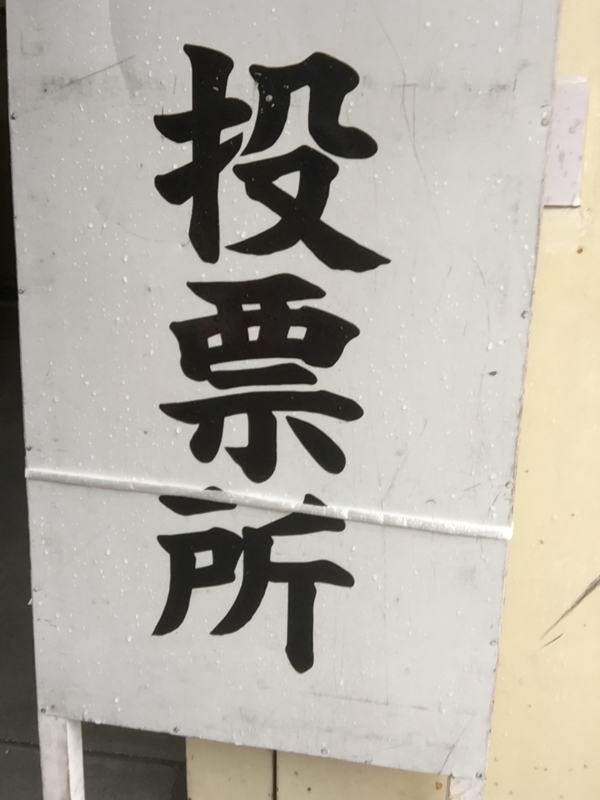 投票所